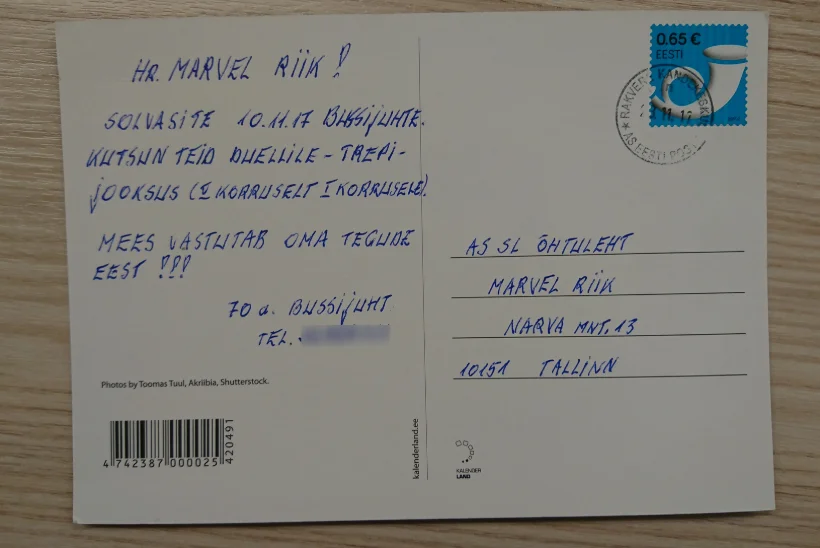 HR. MARVEL RIIK!
SOLVASITE 10.11.17 BUSSIJUHTE.
KUTSUN TEID DUELLILE - TREPI-
JOOKSUS (V KORRUSELT I KORRUSELE).
MEES VASTUTAB OMA TEGUDE
EEST !!!
70 a. BUSSIJUHT
TEL.
Photos by Toomas Tuul, Akriibia, Shutterstock.
4 742387 000025
420491
kalenderland.ee
0.65 €
EESTI
RAKVERE
AS EESTI POST
11 17
AS SL ÕHTULEHT
MARVEL RIIK
NARVA MNT. 13
10151 TALLINN
KALENDER
LAND